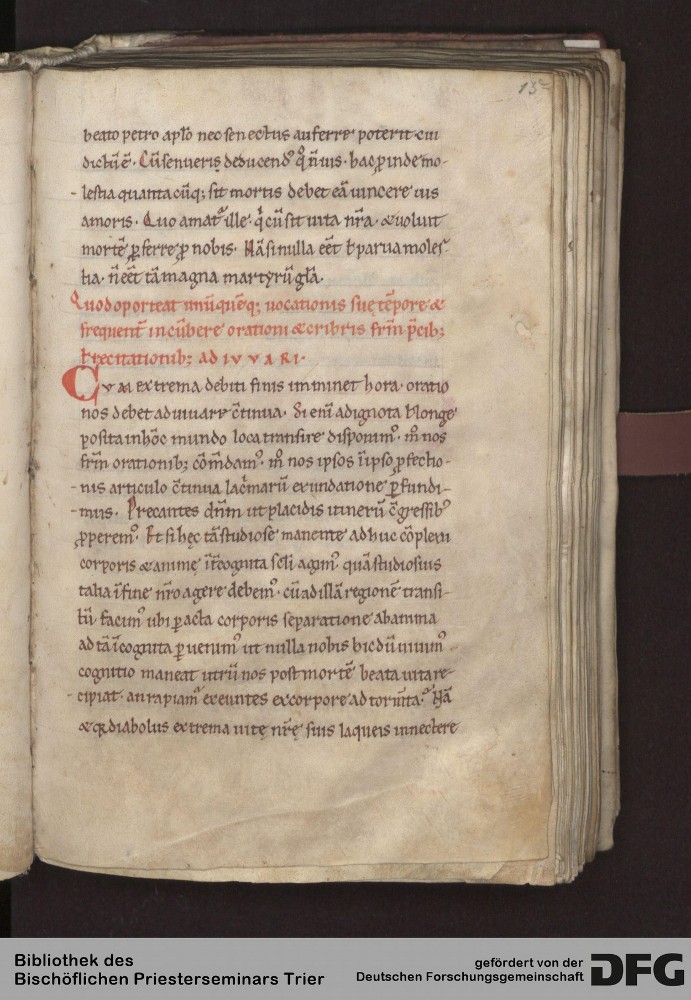 13c
beato petro apło nec senectus auferre poterit cui
dictū ē. Cū senueris
lestia quanta cūq; sit mortis debet eā uincere uis
amoris. Quo amat᷑ ille q̄ cū sit uita nr̄a. & uoluit
mortē ꝑferre ꝓ nobis. Nā si nulla eēt ł parua moles
tia. n̄ eēt tā magna martyrū gła.
Quod oporteat unū quēq; uocationis suę tēpore &
frequent̄ incūbere orationi & cribris frm̄ p̄cib;
ł recitationib; ADIVVARI.
CVM extrema debiti finis imminet hora. oratio
nos debet adiuuare c̄tinua. Si eni᷑ ad ignota ł longe
posita in hoc mundo loca transire disponim᷒. m̄ nos
frm̄ orationib; cōm̄dam᷒. m̄ nos ipsos ī ipso ꝓfectio-
nis articulo c̄tinua lac̄marū exundatione ꝑfundi-
mus. Precantes dn̄m ut placidis itinerū c̄gressib᷒
ꝓperem᷒. Et si hęc tā studiose manente adhuc cōplexu
corporis & animę ī īcognita scłi agim᷒. quā studiosius
talia ī fine nr̄o agere debem᷒. cū ad illā regionē transi-
tū facim᷒ ubi ꝑacta corporis separatione ab anima
ad tā īcognita ꝑuenim᷒ ut nulla nobis hic dū uiuim᷒
cognitio maneat utrū nos post mortē beata uita re-
cipiat. an rapiam᷒ exeuntes ex corpore ad torm̄ta. Nā
& diabolus extrema uitę nr̄ę suis laqueis innectere
Bibliothek des
Bischöflichen Priesterseminars Trier
gefördert von der
Deutschen Forschungsgemeinschaft
DFG